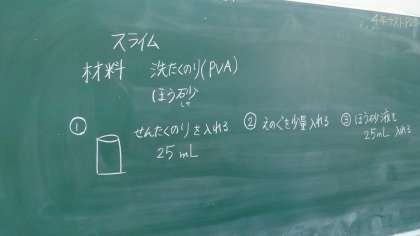 スライム
材料 洗たくのり(PVA)
ほう砂
しゃ
① せんたくのりを入れる
25 mL
② えのぐを少量入れる
③ ほう砂液を
25mL 入れる